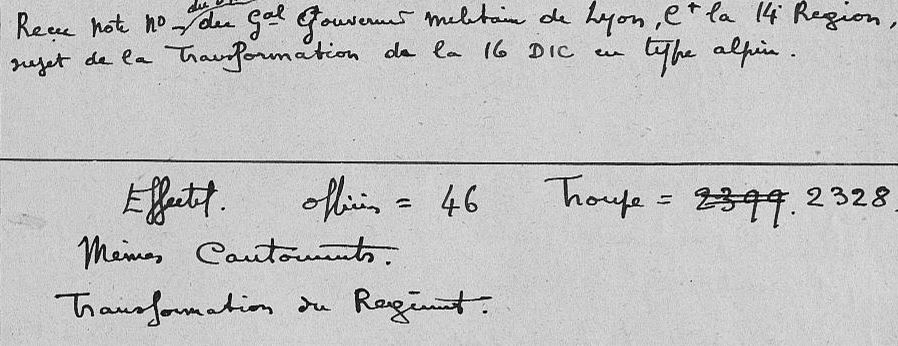 Reçu note N° du Gal Gouverneur militaire de Lyon, Ct la 14e Region,
sujet de la Transformation de la 16 DIC en type alpin.
Effectif. officiers = 46 Troupe = 2399. 2328.
Mêmes Cantonnements.
Transformation du Régiment.